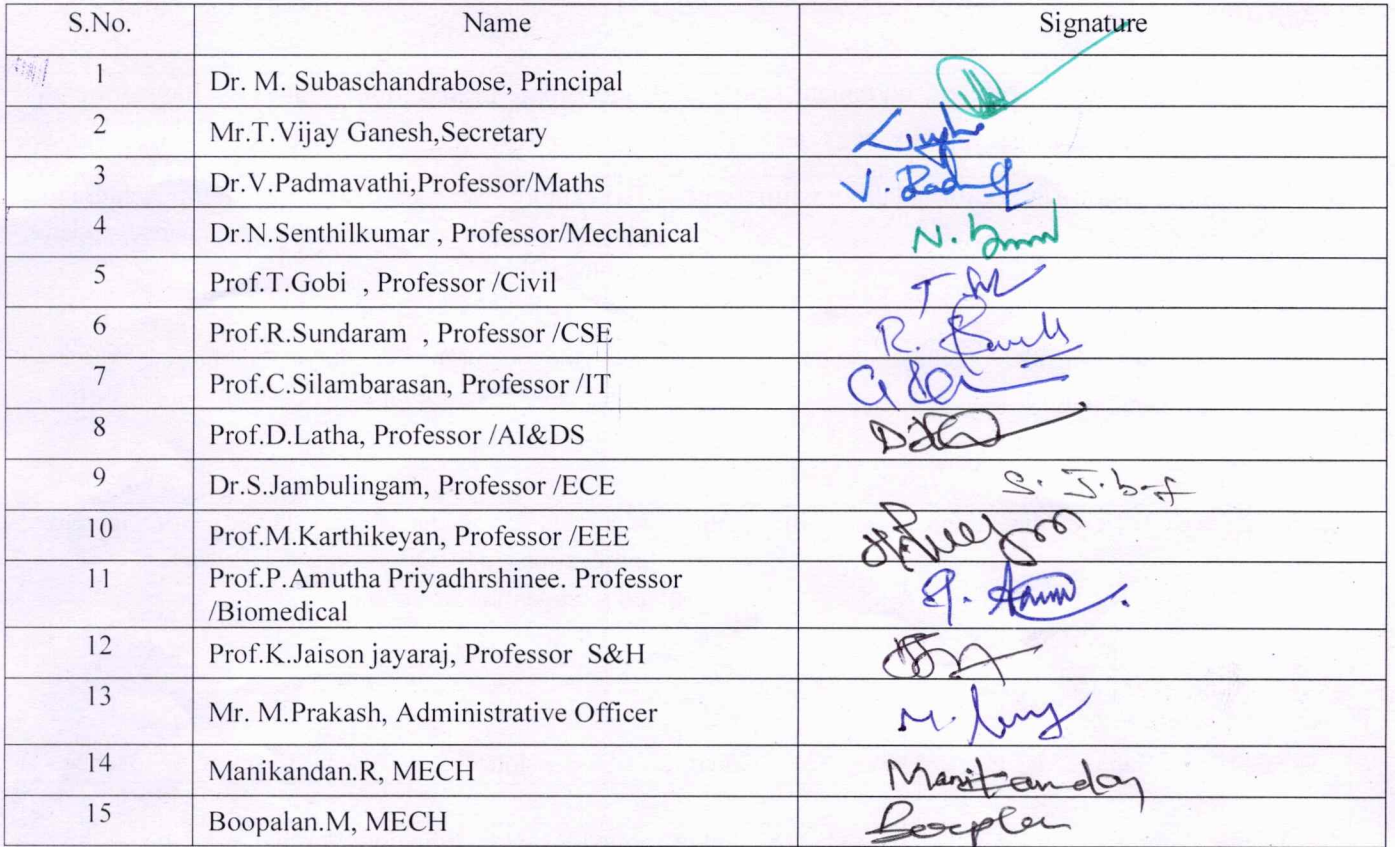 S.No. Name Signature
1 Dr. M. Subaschandrabose, Principal
2 Mr.T.Vijay Ganesh,Secretary
3 Dr.V.Padmavathi,Professor/Maths V.
4 Dr.N.Senthilkumar , Professor/Mechanical N.
5 Prof.T.Gobi , Professor /Civil T
6 Prof.R.Sundaram , Professor /CSE R.
7 Prof.C.Silambarasan, Professor /IT
8 Prof.D.Latha, Professor /AI&DS
9 Dr.S.Jambulingam, Professor /ECE S.
10 Prof.M.Karthikeyan, Professor /EEE
11 Prof.P.Amutha Priyadhrshinee. Professor
/Biomedical
12 Prof.K.Jaison jayaraj, Professor S&H
13 Mr. M.Prakash, Administrative Officer M.
14 Manikandan.R, MECH Manikandan
15 Boopalan.M, MECH